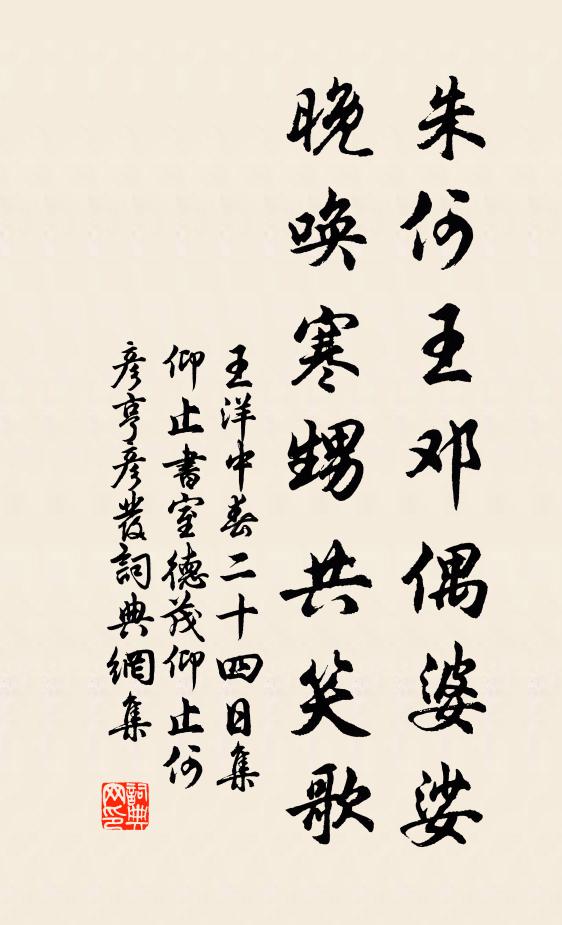 朱何王邓偶婆娑
晚唤寒甥共笑歌
王洋中春二十四日集
仰止書室德茂仰止何
彦亨彦發詞典網集
詞典网印